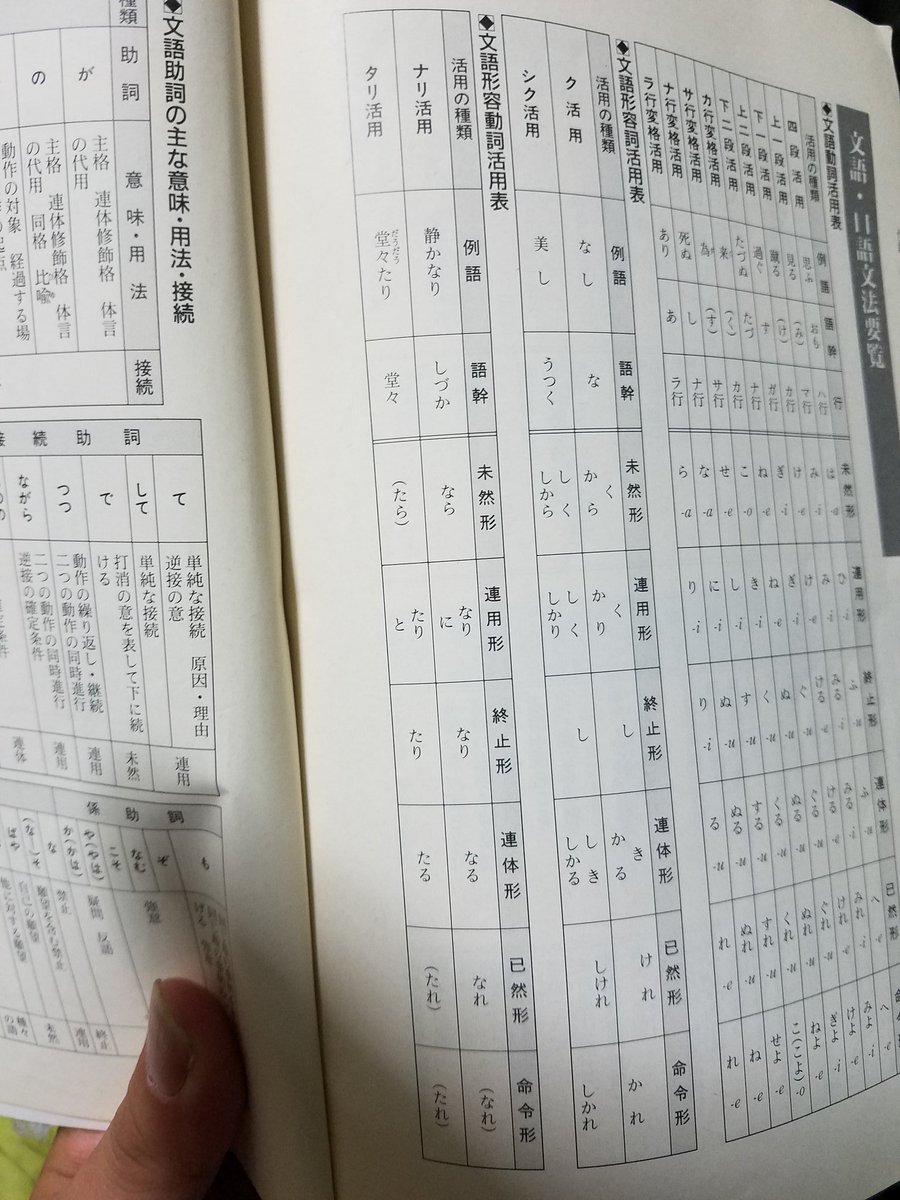 文語・口語文法要覧
◆文語動詞活用表
活用の種類 例語 語幹 行 未然形 連用形 終止形 連体形 已然形 命令形
四段活用 思ふ おも ハ行 は -a ひ -i ふ -u ふ -u へ -e へ -e
上一段活用 見る (み) マ行 み -i み -i みる -i みる -i みれ -i みよ -i
下一段活用 蹴る (け) カ行 け -e け -e ける -e ける -e けれ -e けよ -e
上二段活用 過ぐ す ガ行 ぎ -i ぎ -i ぐ -u ぐる -u ぐれ -u ぎよ -i
下二段活用 たづぬ たづ ナ行 ね -e ね -e ぬ -u ぬる -u ぬれ -u ねよ -e
カ行変格活用 来 (く) カ行 こ -o き -i く -u くる -u くれ -u こ(こよ) -o
サ行変格活用 為 (す) サ行 せ -e し -i す -u する -u すれ -u せよ -e
ナ行変格活用 死ぬ し ナ行 な -a に -i ぬ -u ぬる -u ぬれ -u ね -e
ラ行変格活用 あり あ ラ行 ら -a り -i り -i る -u れ -e れ -e
◆文語形容詞活用表
活用の種類 例語 語幹 未然形 連用形 終止形 連体形 已然形 命令形
ク活用 なし な く から く かり し き かる けれ かれ
シク活用 美し うつく しく しから しく しかり し しき しかる しけれ しかれ
◆文語形容動詞活用表
活用の種類 例語 語幹 未然形 連用形 終止形 連体形 已然形 命令形
ナリ活用 静かなり しづか なら なり に なり なる なれ (なれ)
タリ活用 堂々たり だうだう 堂々 (たら) たり と たり たる (たれ) (たれ)
◆文語助詞の主な意味・用法・接続
種類 助詞 意味・用法 接続
が 主格 連体修飾格 体言の代用
の 主格 連体修飾格 体言の代用 同格 比喩
動作の対象 経過する場
接続助詞
て 単純な接続 原因・理由 逆接の意 連用
して 単純な接続
で 打消の意を表して下に続ける 未然
つつ 動作の繰り返し・継続 二つの動作の同時進行 連用
ながら 二つの動作の同時進行 逆接の確定条件 連用
連体
係助詞
も
ぞ
なむ 強意
こそ
や(やは)
か(かは) 疑問 反語
な 禁止 終止
(な)そ 願望を含む禁止 連用
ばや 自己の願望 未然
他に対する願望
種々の語